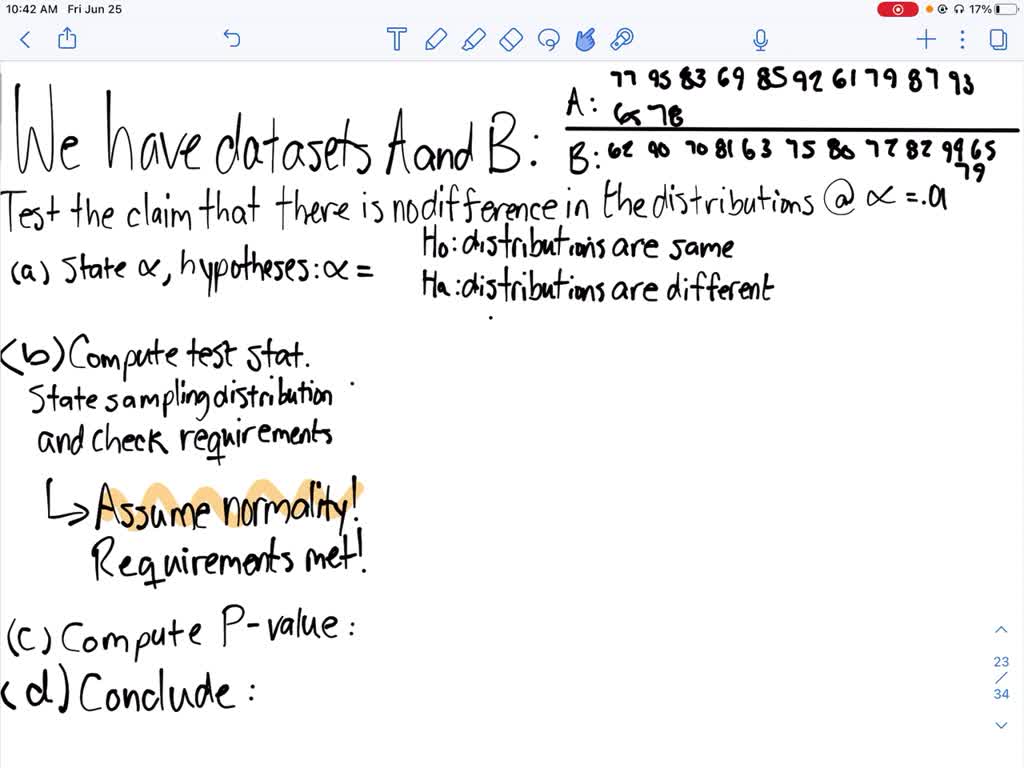 10:42 AM Fri Jun 25
17%
77 95 83 69 85 92 61 79 87 93
A: 65 78
We have datasets A and B:
B: 62 90 70 81 63 75 80 72 82 94 65
79
Test the claim that there is no difference in the distributions @ α = .a
(a) State α, hypotheses: α =
Ho: distributions are same
Ha: distributions are different
(b) Compute test stat.
State sampling distribution
and check requirements
Assume normality!
Requirements met!
(c) Compute P-value:
(d) Conclude:
23
/
34